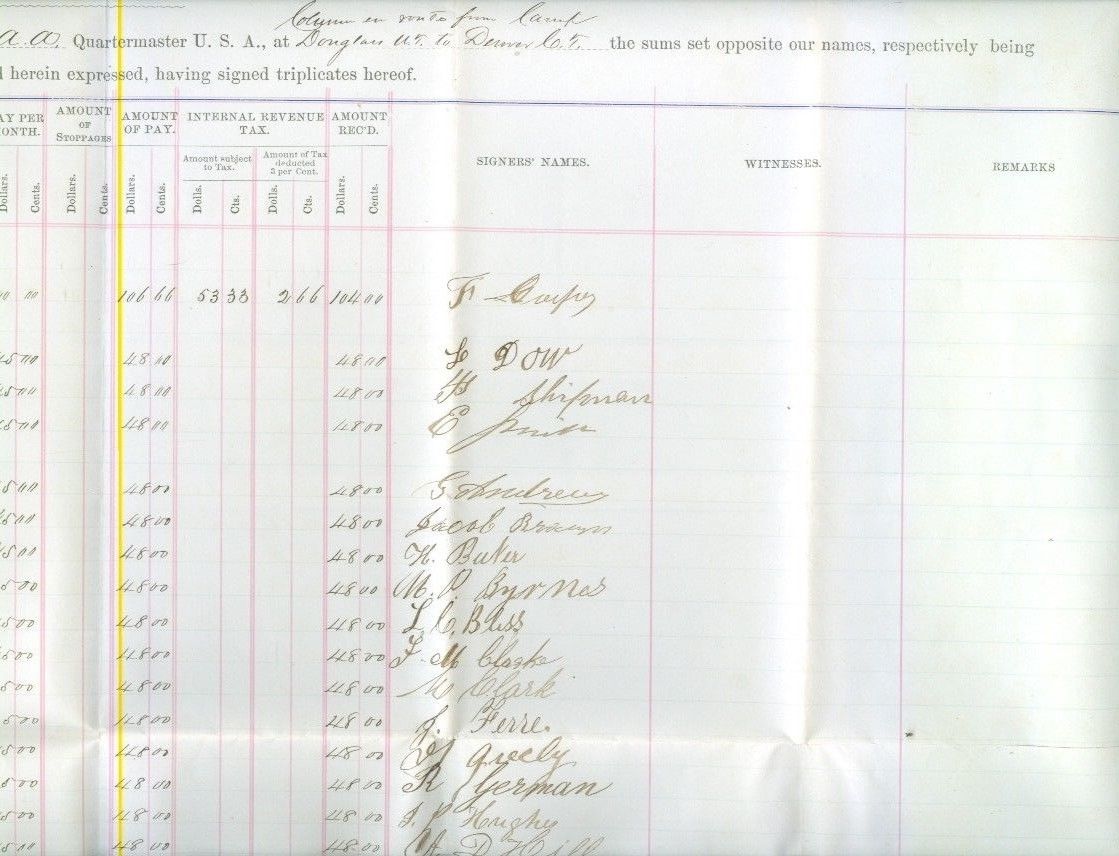 Column en route from Camp
a. a. Quartermaster U. S. A., at Douglas U.T. to Denver C.T. the sums set opposite our names, respectively being
herein expressed, having signed triplicates hereof.
AY PER MONTH. AMOUNT OF STOPPAGES AMOUNT OF PAY. INTERNAL REVENUE TAX. AMOUNT REC'D. SIGNERS' NAMES. WITNESSES. REMARKS
Amount subject to Tax. Amount of Tax deducted 3 per Cent.
Dollars. Cents. Dollars. Cents. Dollars. Cents. Dolls. Cts. Dolls. Cts. Dollars. Cents.
00 106 66 53 33 2 66 104 00 F
500 48 00 48 00 L Dow
500 48 00 48 00 Shipman
500 48 00 48 00 E
500 48 00 48 00 G Andrews
500 48 00 48 00 Jacob Brawn
500 48 00 48 00 H. Buter
500 48 00 48 00 M. P. Byrnes
500 48 00 48 00 L C. Bliss
500 48 00 48 00 F M Clarke
500 48 00 48 00 M Clark
500 48 00 48 00 J. Ferre.
500 48 00 48 00 greely
500 48 00 48 00 R German
500 48 00 48 00 J. P Hughes
48 00 48 00 D Hill